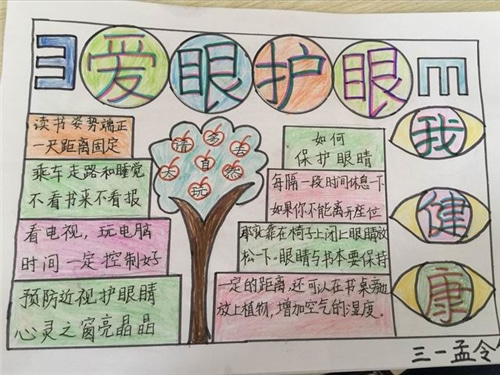 爱眼护眼
读书姿势端正
一尺距离固定
乘车走路和睡觉
不看书来不看报
看电视，玩电脑
时间一定控制好
预防近视护眼睛
心灵之窗亮晶晶
请多去
大自然
玩
如何
保护眼睛
每隔一段时间休息一下
如果你不能离开座位
那就靠在椅子上闭上眼睛放
松一下。眼睛与书本要保持
一定的距离，还可以在书桌
放上植物，增加空气的湿度。
我
健
康
三一孟令